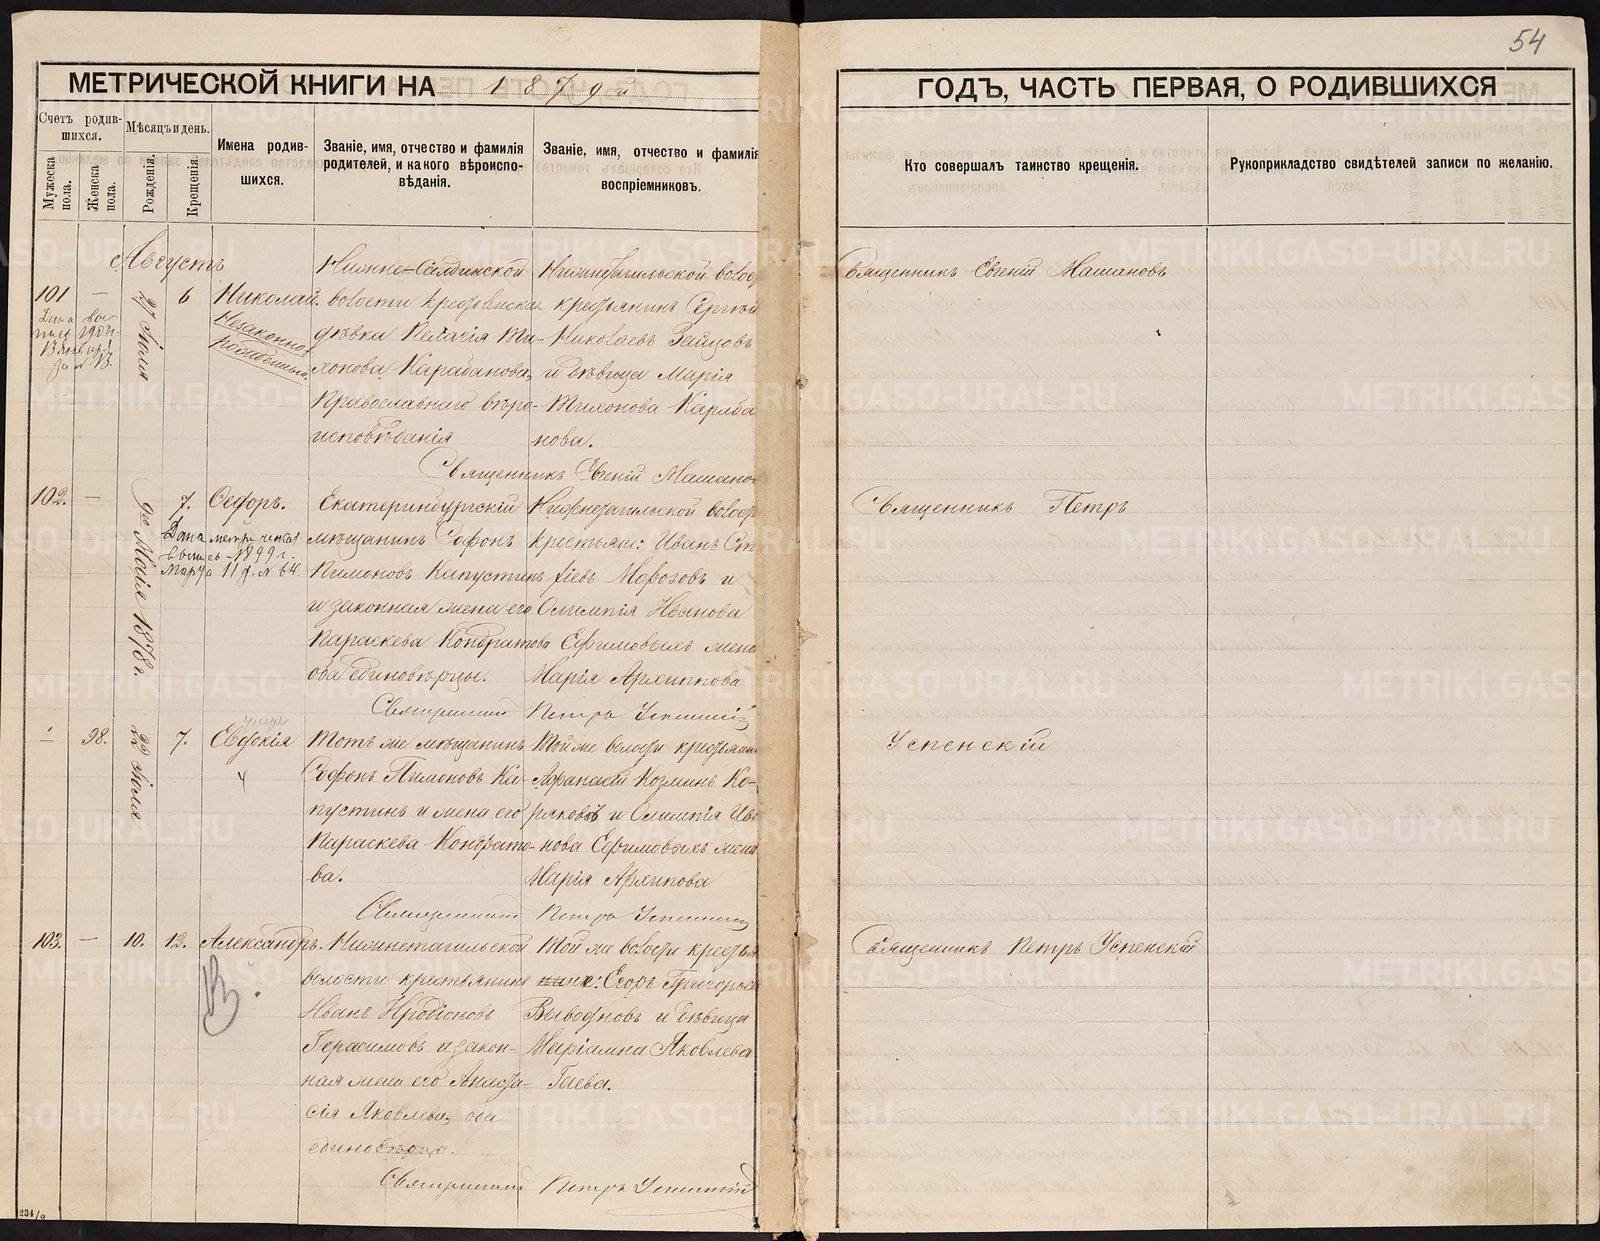 54
МЕТРИЧЕСКОЙ КНИГИ НА 1879й
ГОДЪ, ЧАСТЬ ПЕРВАЯ, О РОДИВШИХСЯ
Счетъ родив-
шихся.
Мужеска пола.
Женска пола.
Мѣсяцъ и день.
Рожденія.
Крещенія.
Имена родив-
шихся.
Званіе, имя, отчество и фамилія
родителей, и какого вѣроиспо-
вѣданія.
Званіе, имя, отчество и фамилія
воспріемниковъ.
Кто совершалъ таинство крещенія.
Рукоприкладство свидѣтелей записи по желанію.
Августъ
101 — 27 Іюля 6 Николай
Незаконно-
рожденный.
Нижне-Салдинской
волости крестьянская
дѣвка Пелагія Ти-
хонова Карабанова,
Православнаго вѣро-
исповѣданія
Нижнетагильской волост
крестьянинъ Сергѣй
Николаевъ Зайцовъ
и дѣвица Марія
Тихонова Караба
нова.
Священникъ Евгеній Машановъ
Священникъ Евгеній Машанов
102. — 9го Маія 1878г. 7. Ѳедоръ.
Дана метрическая
выпись 1899 г.
Марта 11 д. № 64.
Екатеринбургскій
мѣщанинъ Софонъ
Пимоновъ Капустинъ
и законная жена его
Параскева Кондратова
оба единовѣрцы.
Нижнетагильской волост
крестьяне: Иванъ
Морозовъ и
Олимпія Иванова
Ефимовыхъ жена
Марія Архипкова
Священникъ Петръ
Священникъ Петръ Успенскій
— 98. 22 Іюля 7. Евдокія
умре
Тотъ же мѣщанинъ
Софонъ Пимоновъ Ка-
пустинъ и жена его
Параскева Кондрато-
ва.
Той же волости крестьянин
Афанасій Козминъ Ко-
ряковъ и Олимпія Ива
нова Ефимовыхъ жена
Марія Архипова
Успенскій
Священникъ Петръ Успенскій
103. — 10. 12. Александръ.
Нижнетагильской
волости крестьянинъ
Иванъ Иродіоновъ
Герасимовъ и закон-
ная жена его Анаста-
сія Яковлева, оба
единовѣрцы.
Той же волости крестья
не: Егоръ Григорьев
Выводновъ и дѣвица
Маріамна Яковлева
Гаева.
Священникъ Петръ Успенскій
Священникъ Петръ Успенскій
234/2
METRIKI.GASO-URAL.RU